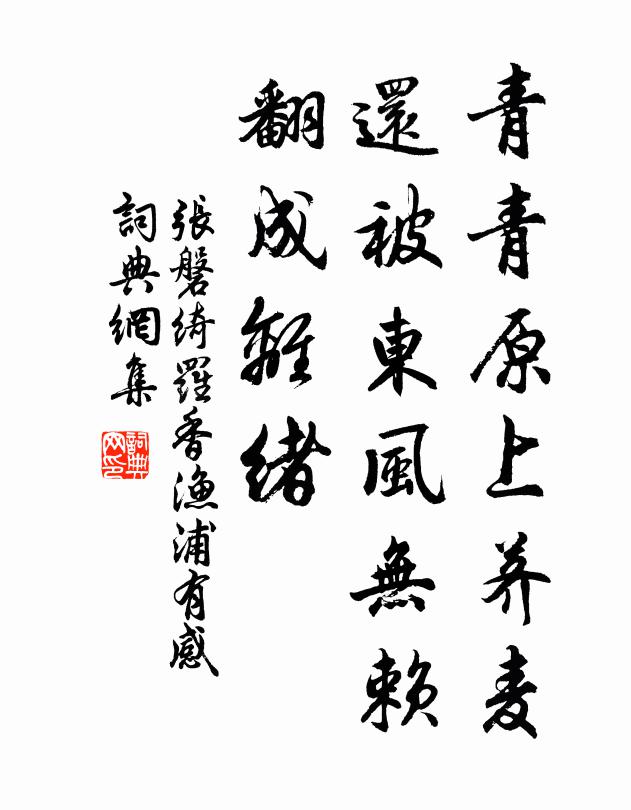 青青原上荞麦
還被東風無賴
翻成離緒
張磐綺羅香漁浦有感
詞典網集
詞典
网印